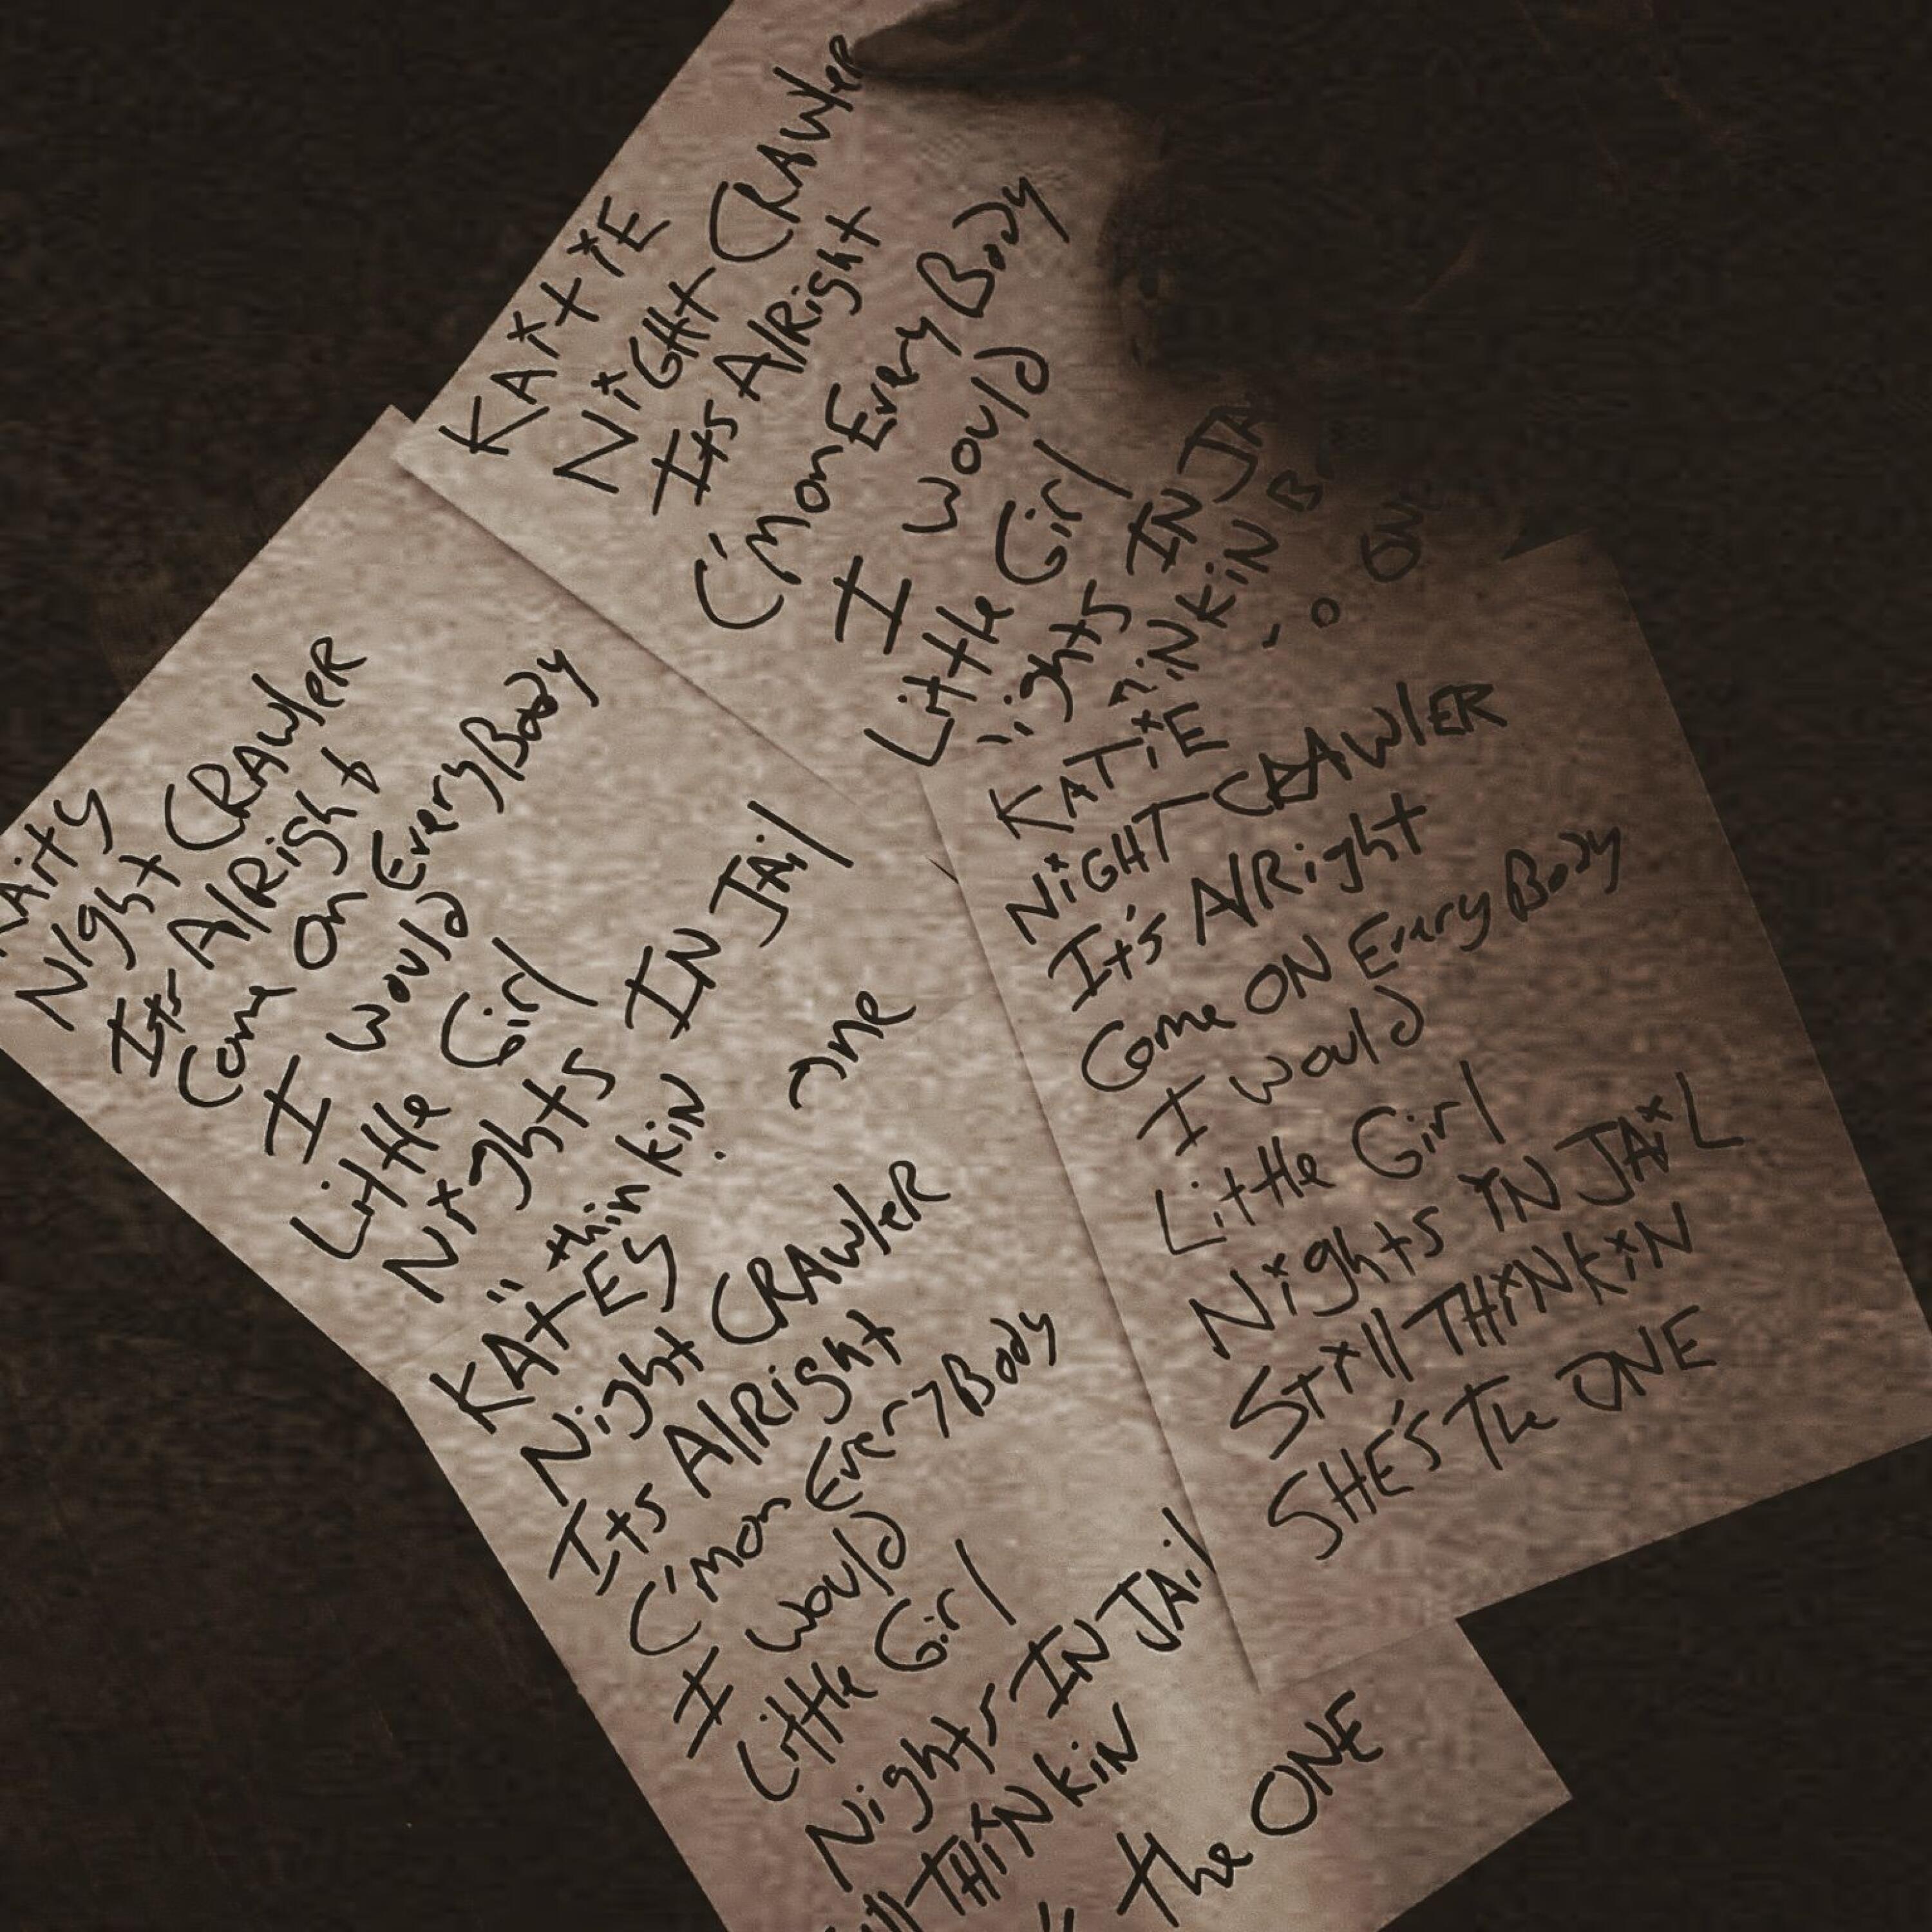 KAitiE
NiGHt CRAWleR
Its AlRight
C'mon Every Body
I would
Little Girl
ights IN JA
iNKiN
ON
Aity
Night CRAWleR
Its AlRight
Come On EveryBody
I would
Little Girl
Nights IN JAil
thinkiN
one
KATiE
NiGHT CRAWlER
It's AlRight
Come ON Every Body
I would
Little Girl
Nights iN JAiL
Still THiNKiN
SHE'S The ONE
KAtEy
Night CRAWleR
Its AlRight
C'mon Every Body
I would
Little Girl
Nights IN JAil
ll THiNKiN
the ONE